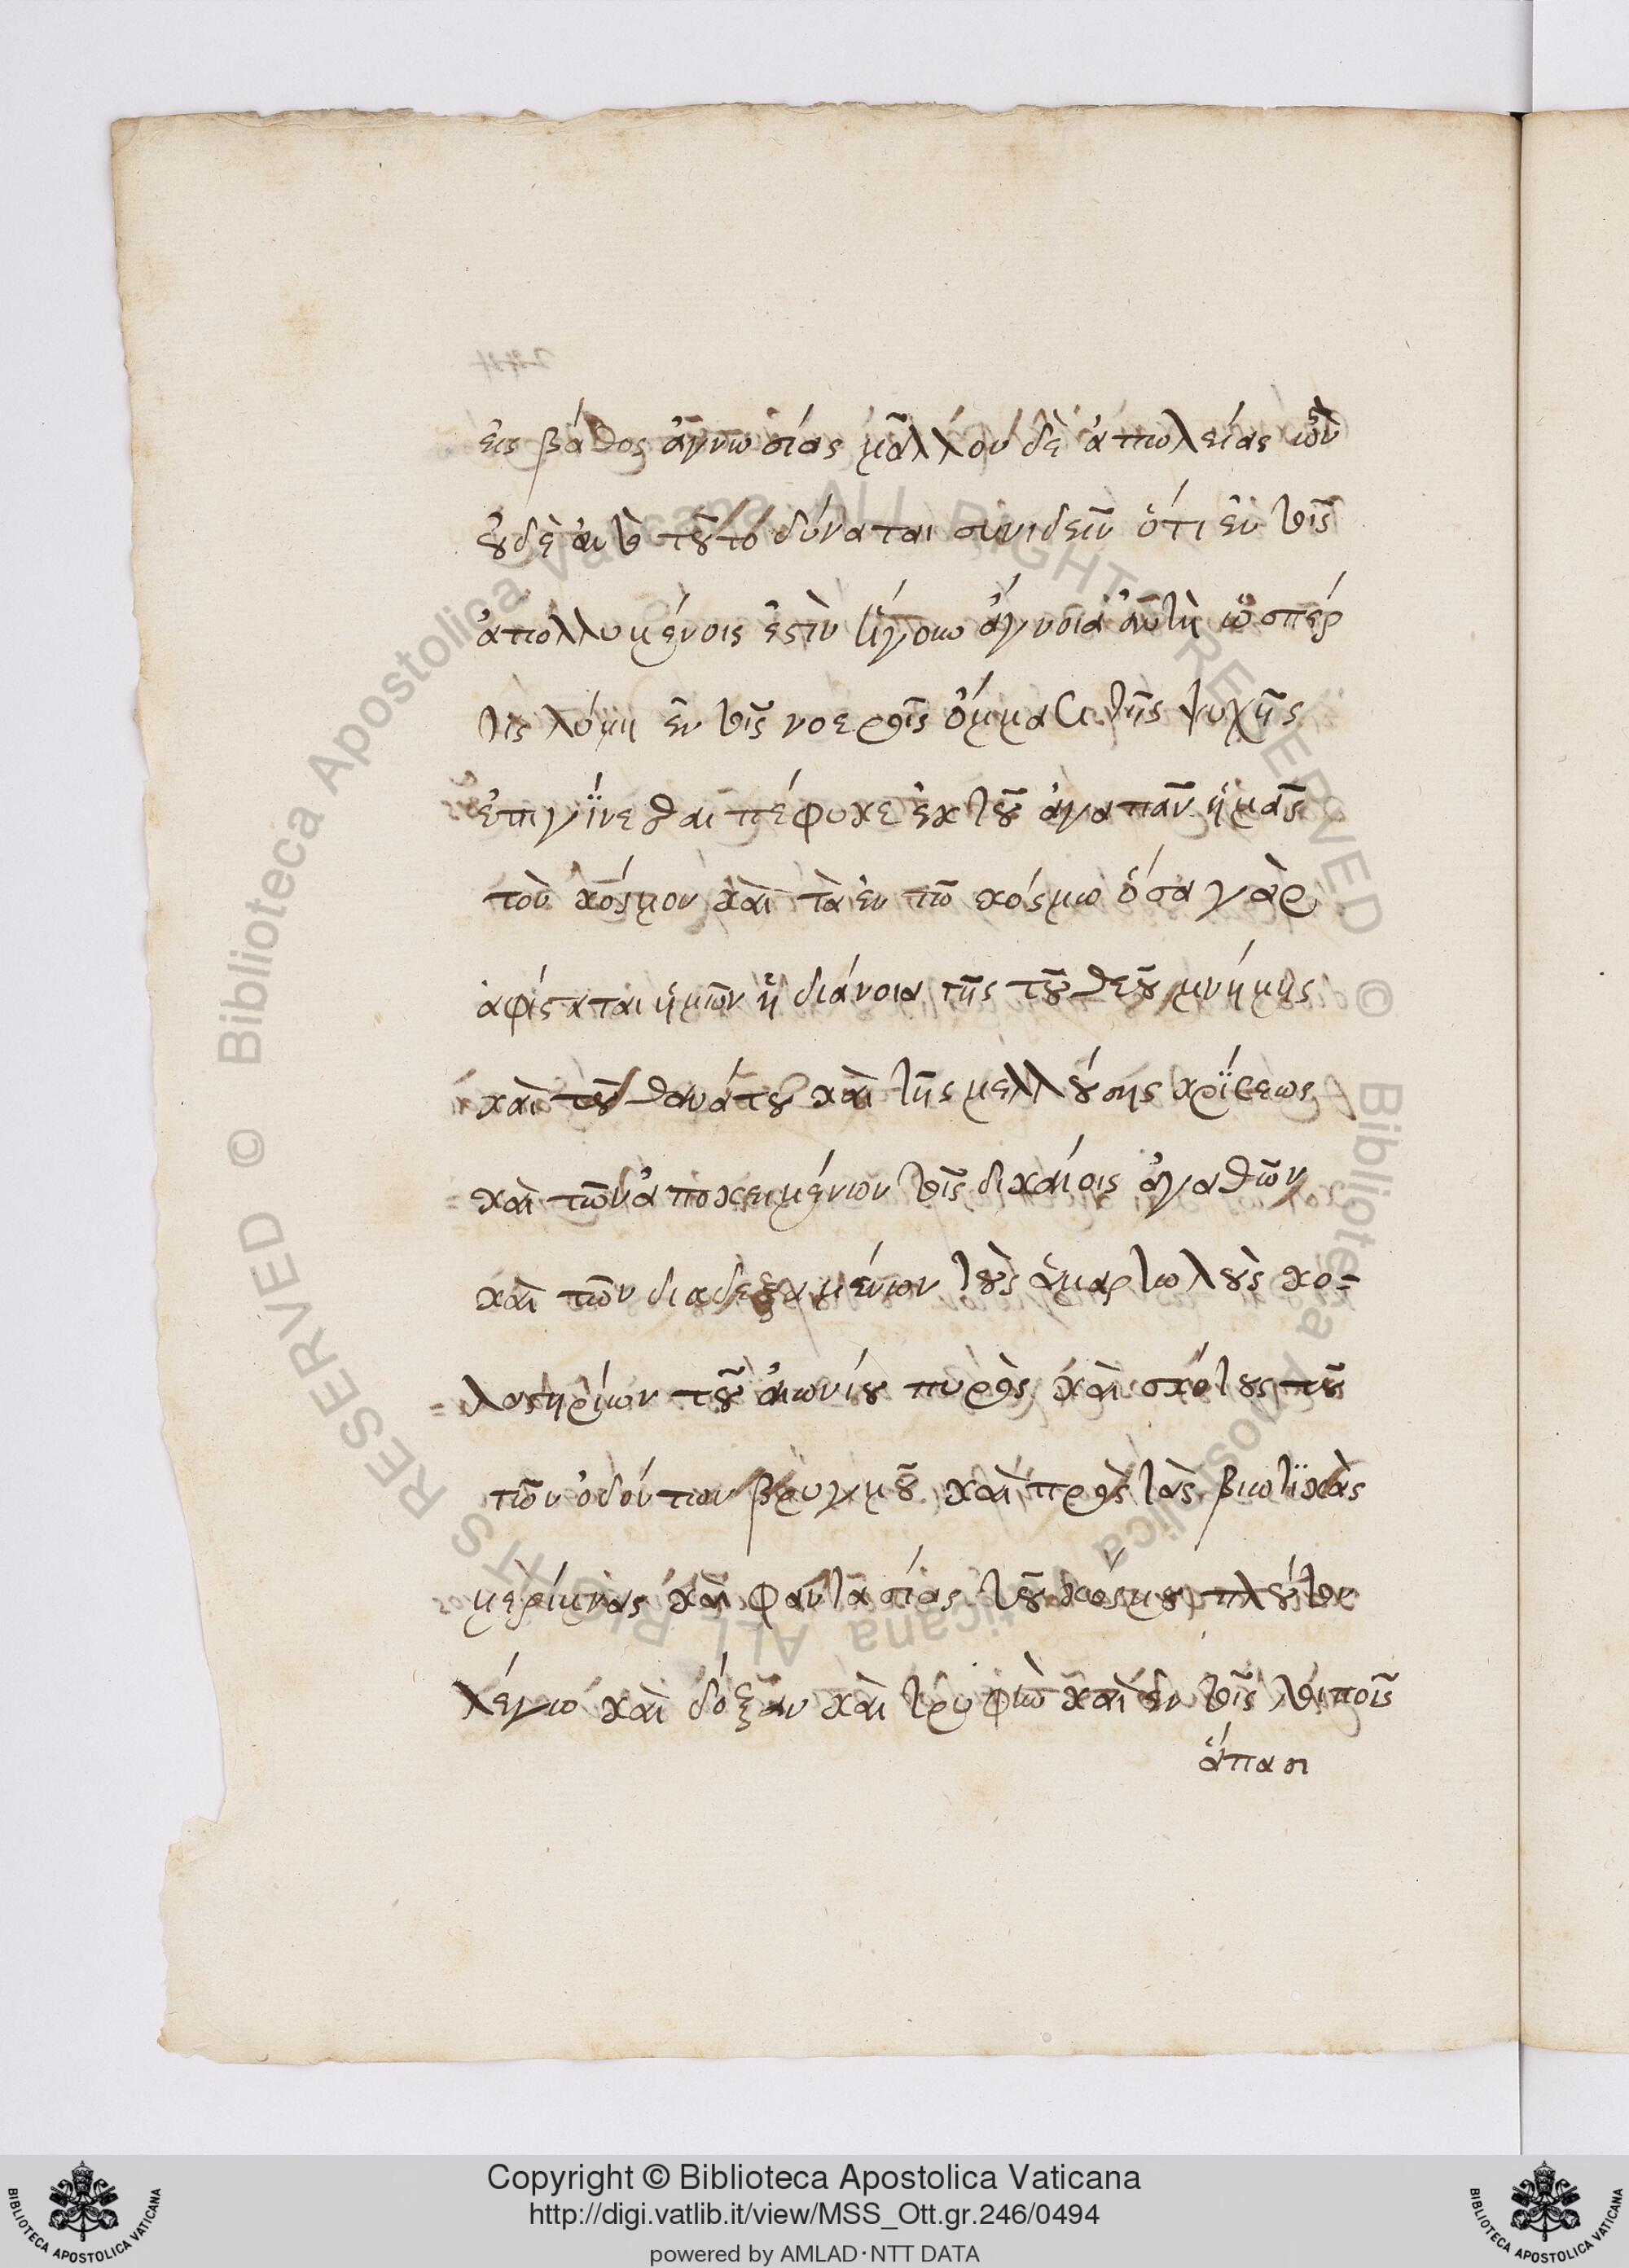 εἰς βάθος ἀγνωσίας μᾶλλον δὲ ἀπωλείας ὢν
οὐδὲ αὐτὸ τοῦτο δύναται συνιδεῖν ὅτι ἐν τοῖς
ἀπολλυμένοις ἐστὶν ἄγνοια αὐτὴ ὥσπερ
τις λύμη ἐν τοῖς νοεροῖς ὄμμασι τῆς ψυχῆς
ἐπιγΐνεσθαι πέφυκε ἐκ τοῦ ἀγαπᾶν ἡμᾶς
τὸν κόσμον καὶ τὰ ἐν τῶ κόσμω ὅσα γὰρ
ἀφίσταται ἡμῶν ἡ διάνοια τῆς τοῦ θεοῦ μνήμης
καὶ τοῦ θανάτου καὶ τῆς μελλούσης κρίσεως
καὶ τῶν ἀποκειμένων τοῖς δικαίοις ἀγαθῶν
καὶ τῶν διαδεξαμένων τοὺς ἁμαρτωλοὺς κο-
λαστηρίων τοῦ αἰωνίου πυρὸς καὶ σκότους τοῦ
τῶν ὀδόντων βρυγμοῦ καὶ πρὸς τὰς βιωτϊκὰς
μερίμνας καὶ φαντασίας τοῦ κόσμου πλούτον
λέγω καὶ δόξαν καὶ τρυφὼ καὶ ἐν τοῖς λοιποῖς
ἅπασι
Copyright © Biblioteca Apostolica Vaticana
http://digi.vatlib.it/view/MSS_Ott.gr.246/0494
powered by AMLAD·NTT DATA
BIBLIOTECA APOSTOLICA VATICANA
BIBLIOTECA APOSTOLICA VATICANA
© Biblioteca Apostolica Vaticana ALL RIGHTS RESERVED © Biblioteca Apostolica Vaticana ALL RIGHTS RESERVED